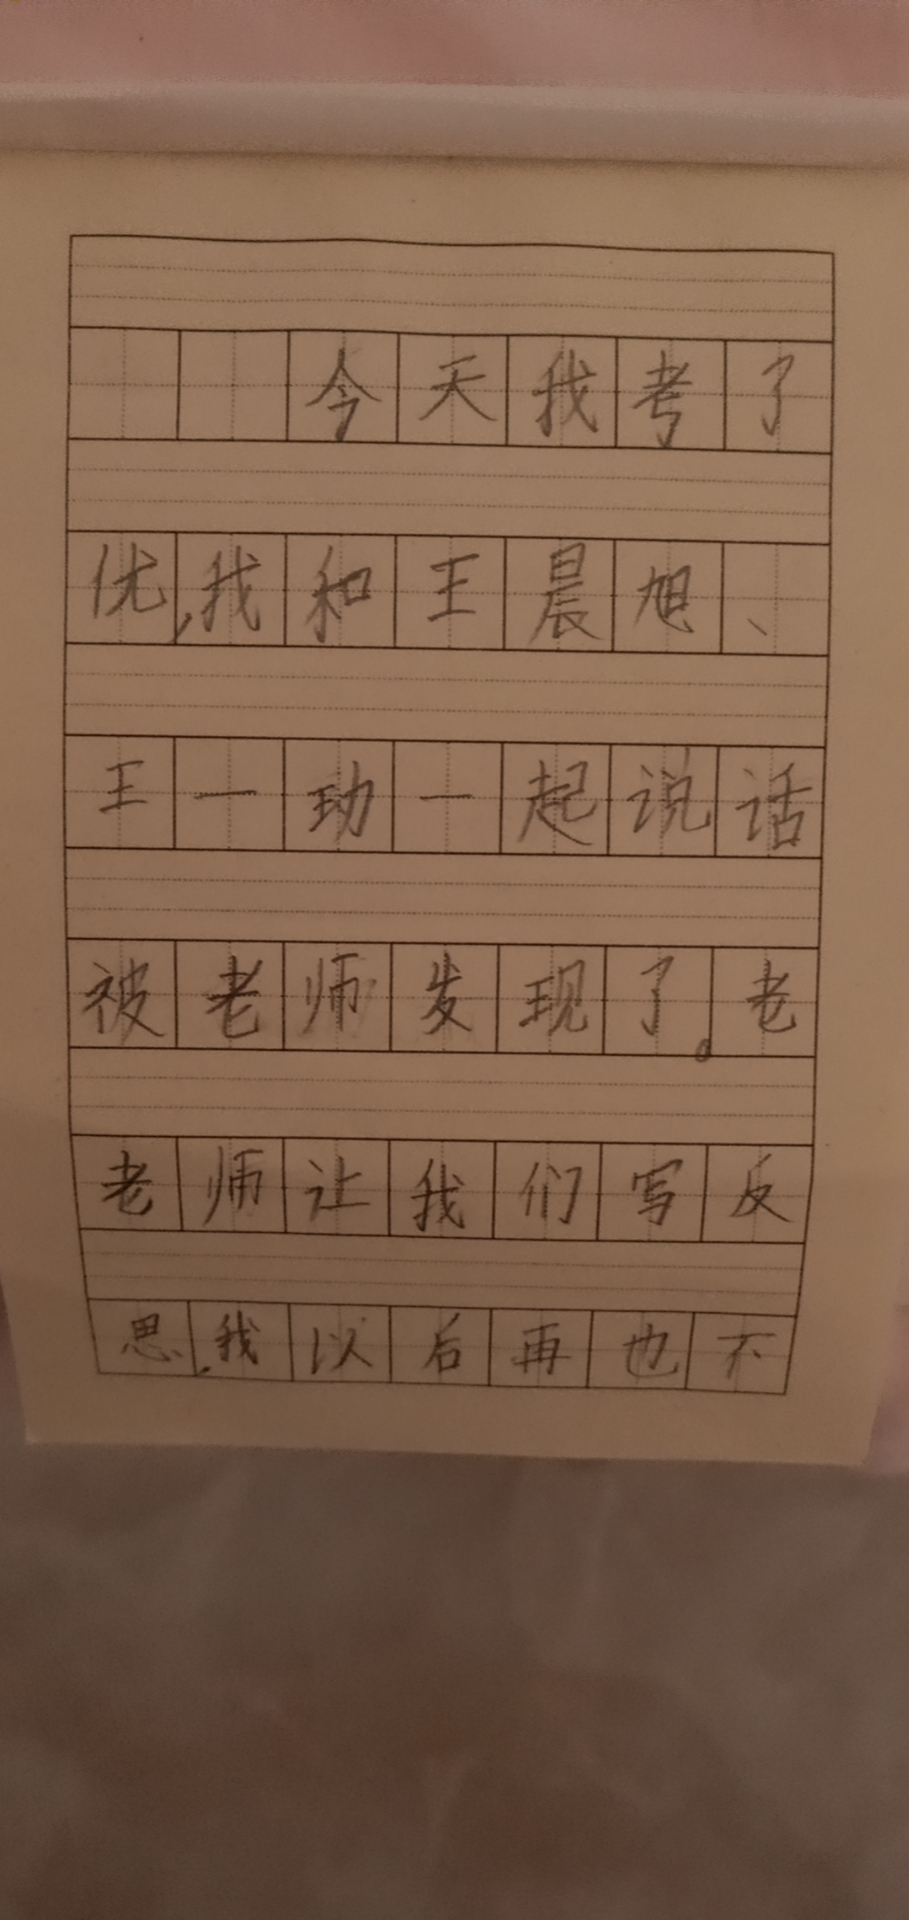 今天我考了
优,我和王晨旭、
王一功一起说话
被老师发现了。老
老师让我们写反
思,我以后再也不